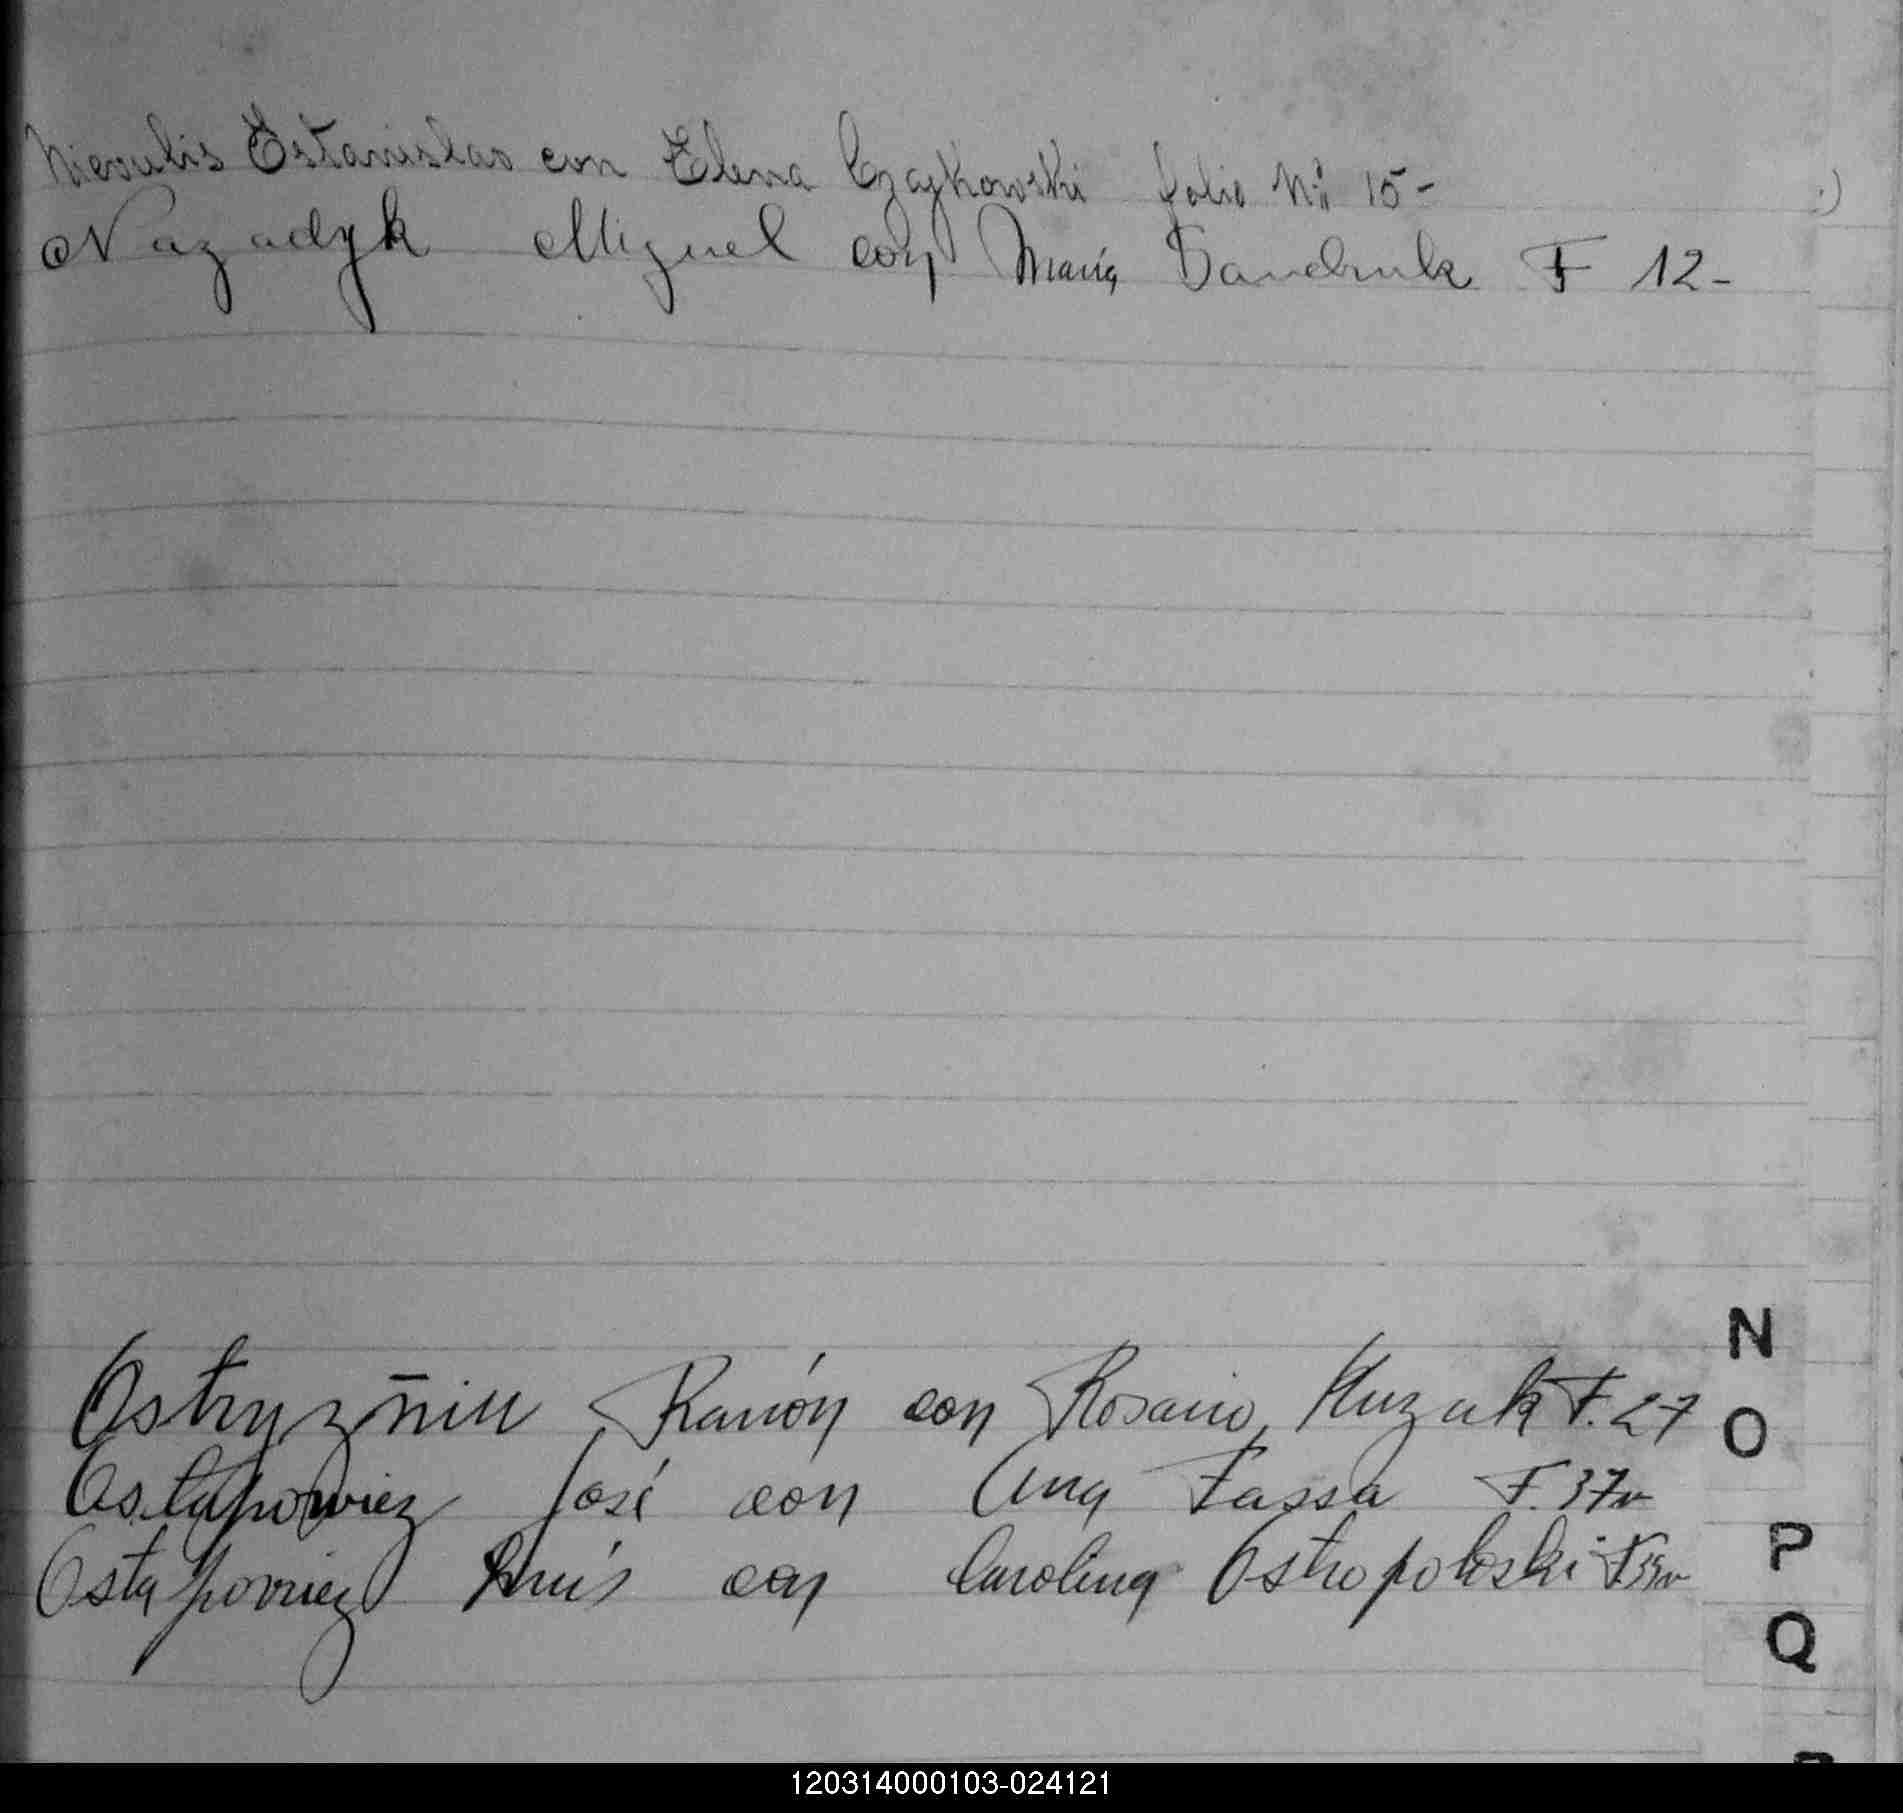 Estanislao con Elena Czajkowski folio Nº 15-
Nazadyk Miguel con María Danchuk F 12-
N
Ostryzñiu Ramón con Rosario Huzuk F. 27
O
Ostapowiez José con Ana Fassa F. 37v
P
Ostapowiez Luis con Carolina Ostropoloski F 35v
Q
120314000103-024121